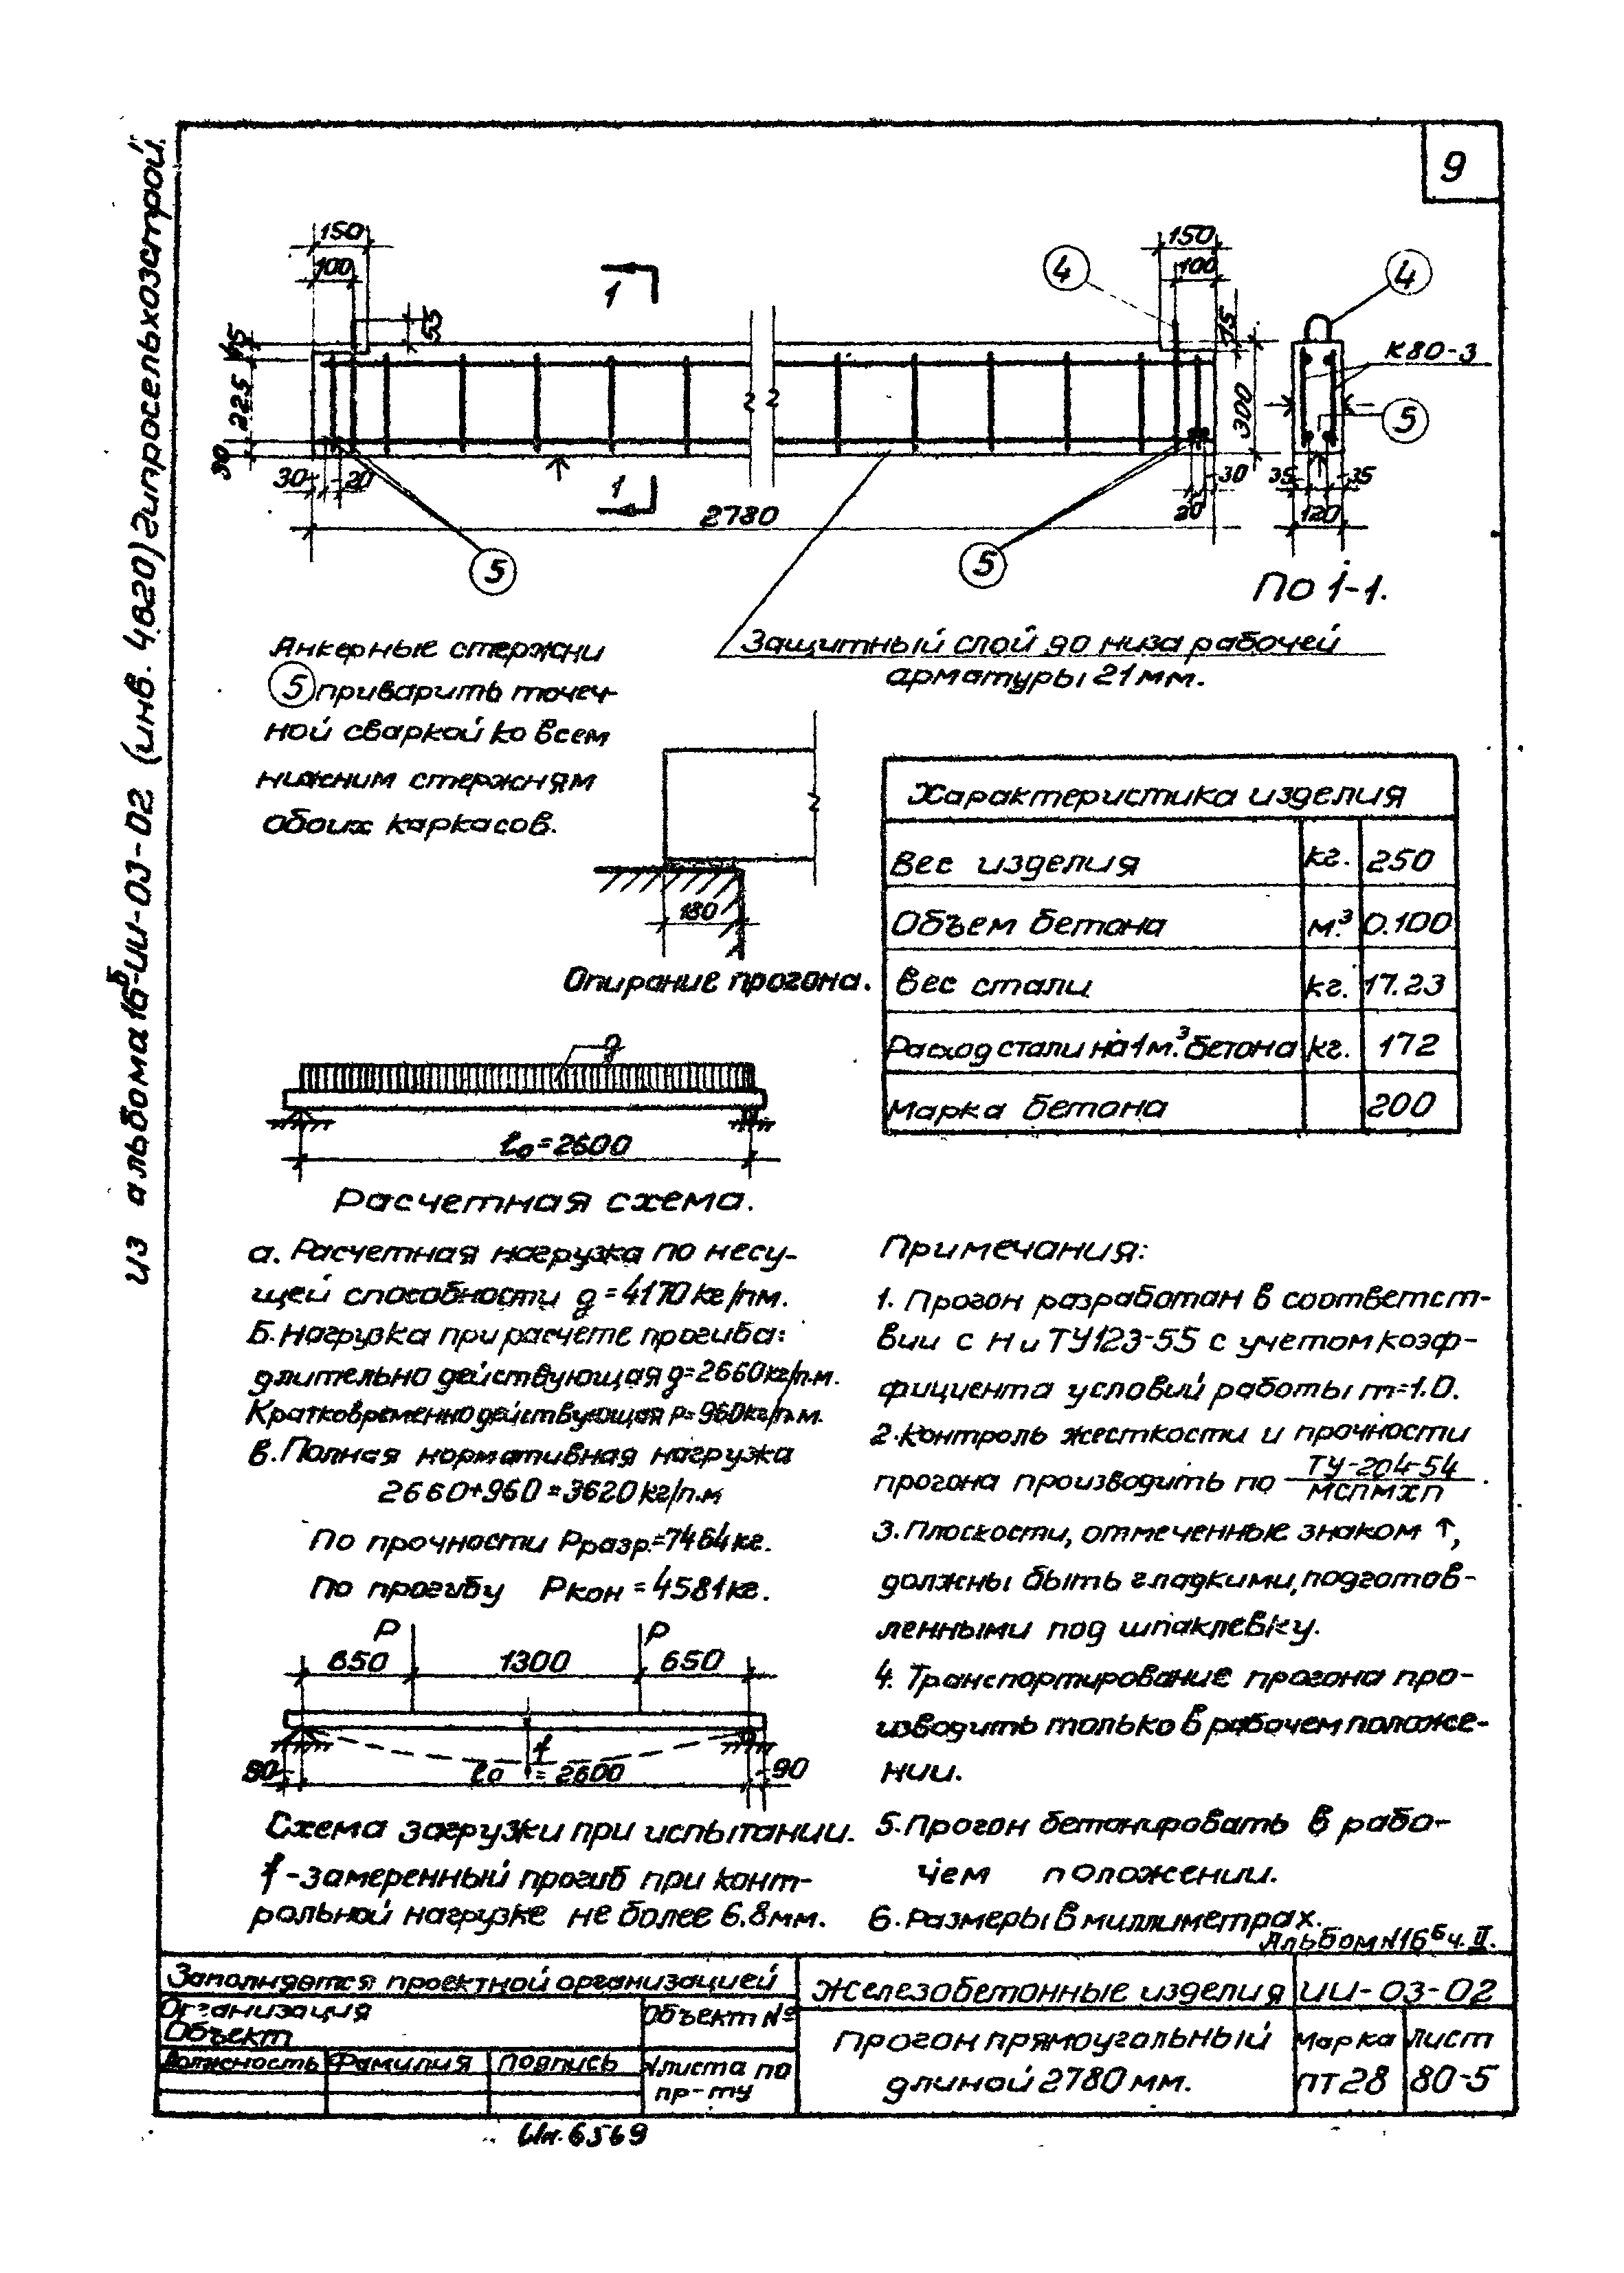 9
из альбома 16Б-ИИ-03-02 (инв. 4820) Гипросельхозстрой"
150
100
150
100
1
4
4
55
75
К80-3
45
225
30
300
5
30
20
1
30
20
35
35
2780
120
5
5
По 1-1.
Анкерные стержни
5 приварить точеч-
ной сваркой ко всем
нижним стержням
обоих каркасов.
Защитный слой до низа рабочей
арматуры 21 мм.
180
Опирание прогона.
Характеристика изделия
Вес изделия кг. 250
Объем бетона м.³ 0.100
Вес стали кг. 17.23
Расход стали на 1м.³ бетона кг. 172
Марка бетона 200
g
l₀=2600
Расчетная схема.
а. Расчетная нагрузка по несу-
щей способности g=4170кг/пм.
Б. Нагрузка при расчете прогиба:
длительно действующая g=2660кг/п.м.
Кратковременно действующая р=960кг/п.м.
в. Полная нормативная нагрузка
2660+960=3620кг/п.м
По прочности Рразр.=7464кг.
По прогибу Ркон=4581кг.
Р
Р
650
1300
650
f
90
l₀ = 2600
90
Схема загрузки при испытании.
f - замеренный прогиб при конт-
рольной нагрузке не более 6.8мм.
Примечания:
1. Прогон разработан в соответст-
вии с Н и ТУ123-55 с учетом коэф-
фициента условий работы m=1.0.
2. Контроль жесткости и прочности
прогона производить по ТУ-204-54
МСПМХП.
3. Плоскости, отмеченные знаком ↑,
должны быть гладкими, подготов-
ленными под шпаклевку.
4. Транспортирование прогона про-
изводить только в рабочем положе-
нии.
5. Прогон бетонировать в рабо-
чем положении.
6. Размеры в миллиметрах.
Альбом N16Б ч. II.
Заполняется проектной организацией
Организация
Объект
Объект №
Должность Фамилия Подпись
№листа по
пр-ту
Железобетонные изделия
ИИ-03-02
Прогон прямоугольный
длиной 2780 мм.
Марка
ПТ28
Лист
80-5
Ин. 6569